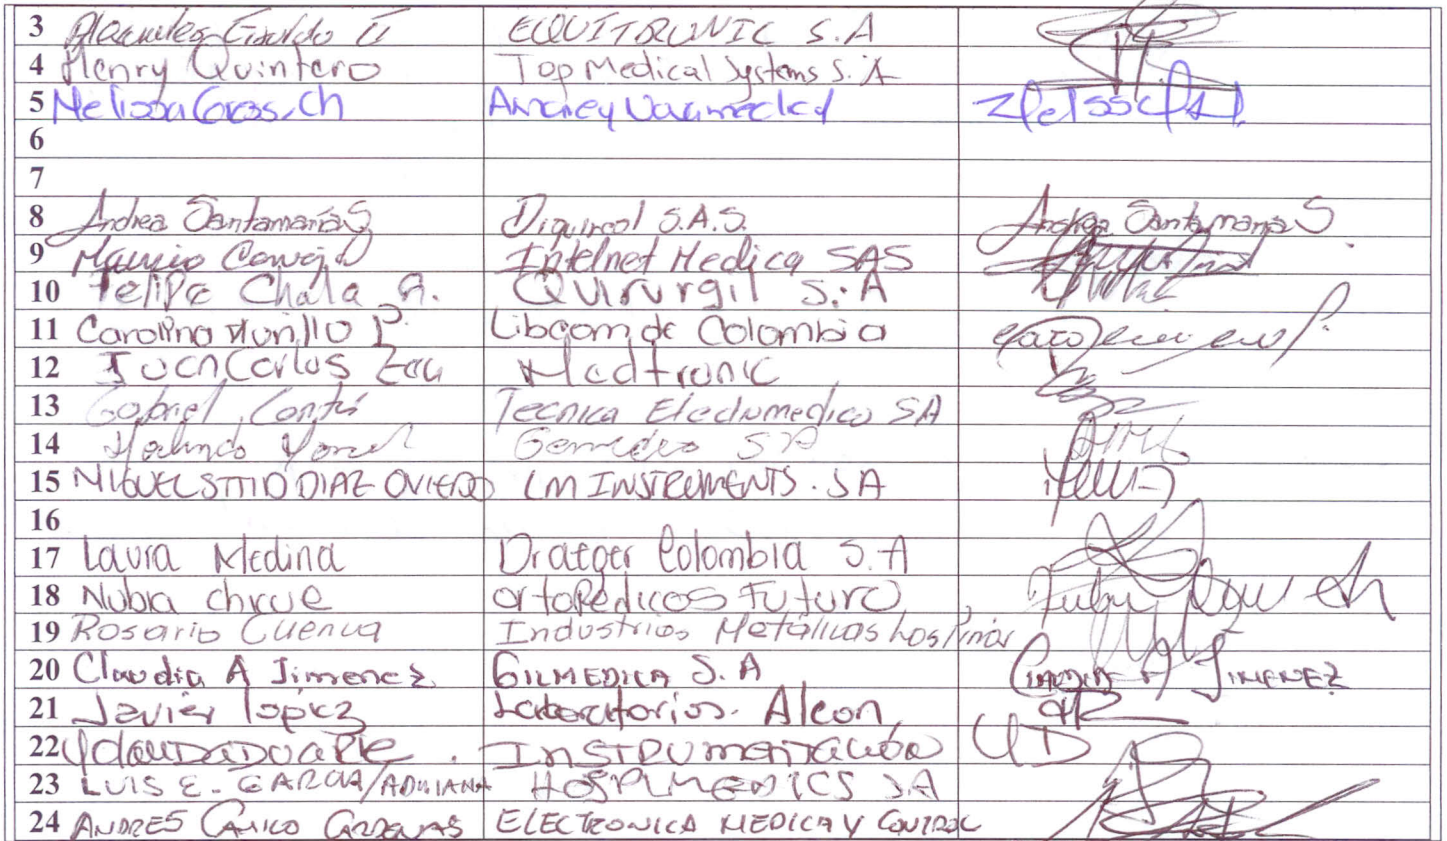 3 Giraldo G EQUITRONIC S.A
4 Henry Quintero Top Medical Systems S.A
5 Melissa Ch
6
7
8 Andrea Santamaría S. Diquircol S.A.S. Andrea Santamaria S.
9 Mauricio Intelnet Medica SAS
10 Felipe Chala A. Quirurgil S.A
11 Carolina Murillo P. Libcom de Colombia
12 Juan Carlos Medtronic
13 Gabriel Cortés Tecnica Electromedica SA
14 SA
15 MIGUEL DIAZ OVIEDO LM INSTRUMENTS. SA
16
17 Laura Medina Draeger Colombia S.A
18 Nubia Chicue Ortopédicos Futuro
19 Rosario Cuenca Industrias Metálicas Los Pinos
20 Claudia A Jimenez GILMEDICA S.A CLAUDIA A JIMENEZ
21 Javier López Laboratorios Alcon
22 INSTRUMENTACIÓN YD
23 LUIS E. GARCIA/ADRIANA HOSPIMEDICS SA
24 ANDRES CAMILO CARDENAS ELECTRONICA MEDICA Y CONTROL